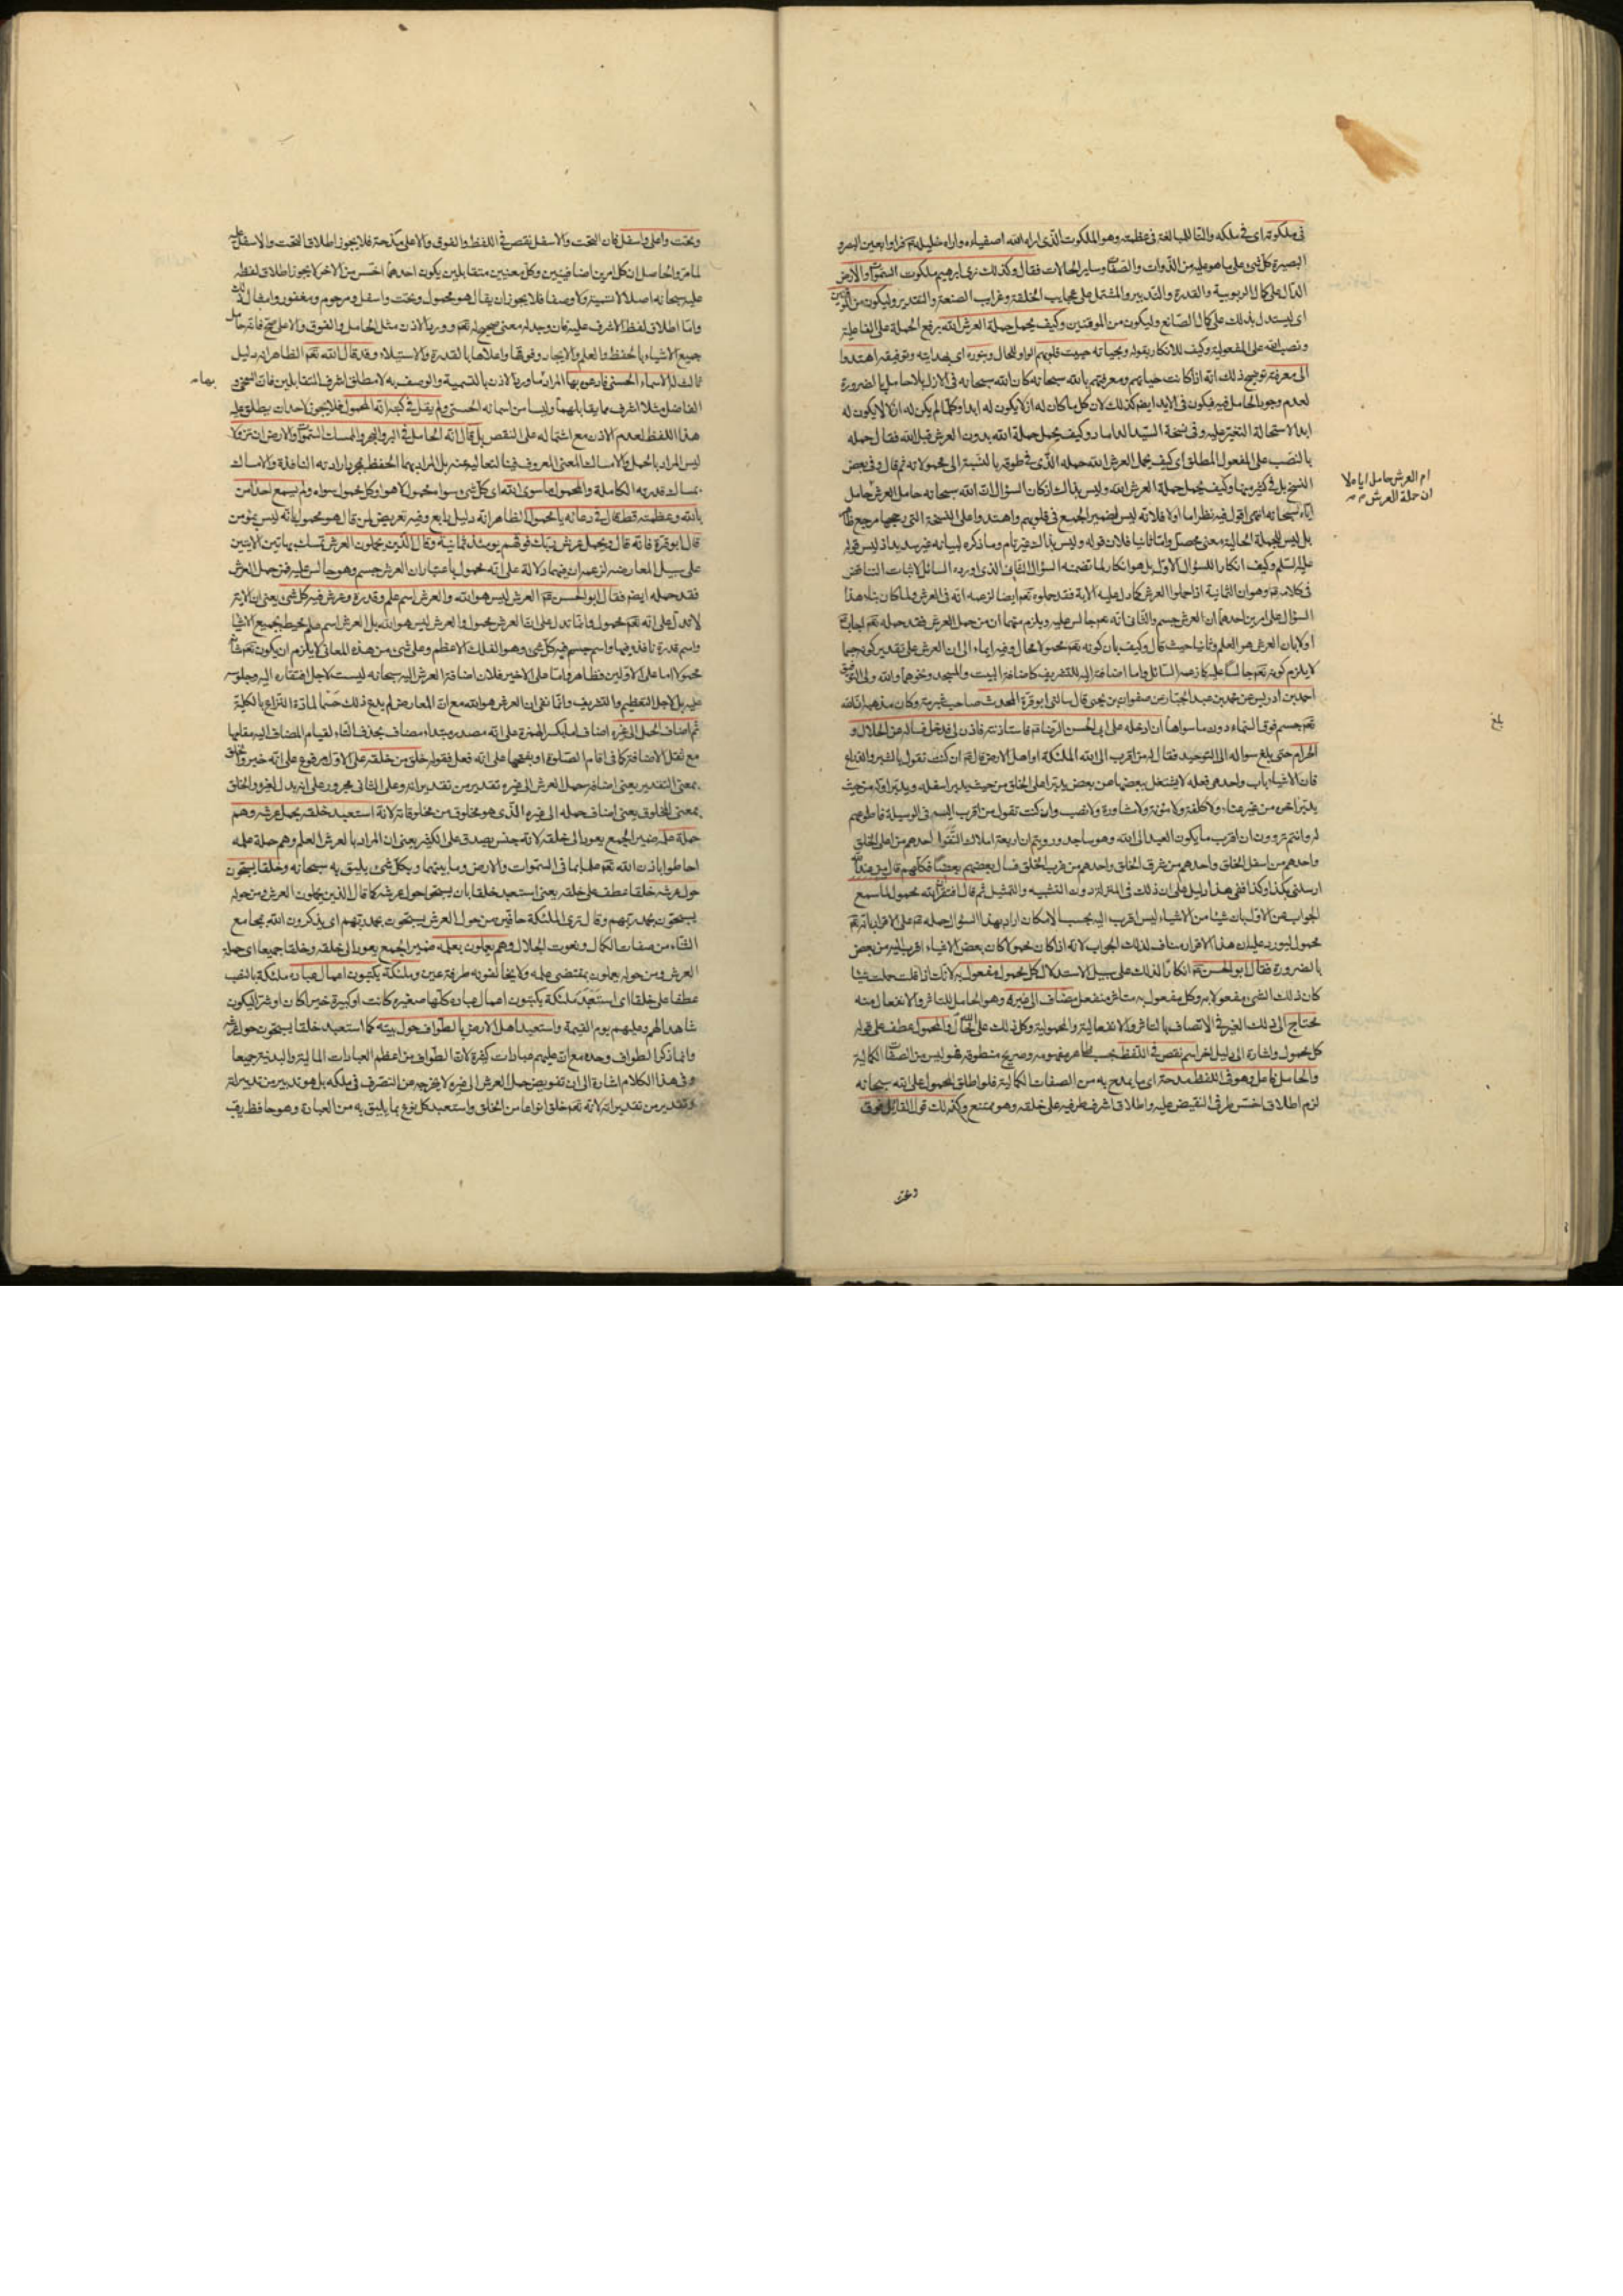 فى ملكوته اى فى ملكه والتا للمبالغة فى عظمته وهو الملكوت الذى اراه الله اصفياءه واراه خليله فراوا بعين البصر و
البصيرة كل شئ على ما هو عليه من الذوات والصفات وساير الحالات فقال وكذلك نرى ابرهيم ملكوت السموات والارض
الدال على كمال الربوبية والقدرة والتدبير والمشتمل على عجايب الخلقة وغرايب الصنعة والتقدير وليكون من الموقنين
اى ليستدل بذلك على كمال الصانع وليكون من الموقنين وكيف يحمل حملة العرش الله برفع الحملة على الفاعلية
ونصب الله على المفعولية وكيف للانكار بقوله وبحياته حييت قلوبهم الواو للحال وبنوره اى بهدايته وتوفيقه اهتدوا
الى معرفته توضيح ذلك انه اذا كانت حياتهم ومعرفتهم بالله سبحانه كان الله سبحانه فى الازل بلا حامل بالضرورة
لعدم وجود الحامل غيره فيكون فى الابد ايضا كذلك لان كل ما كان له ازلا يكون له ابدا وكلما لم يكن له ازلا لا يكون له
ابدا لاستحالة التغير عليه وفى نسخة السيد الداماد وكيف يحمل حملة الله بدون العرش قبل الله فقال حمله
بالنصب على المفعول المطلق اى كيف يحمل العرش الله حمله الذى فى طوقه بالنسبة الى محمولاته ثم قال وفى بعض
النسخ بل فى كثير منها وكيف يحمل حملة العرش الله وليس بذاك اذ كان السؤال ان الله سبحانه حامل العرش حامل
ام العرش حامل اياه لا
ان حملة العرش
اياه سبحانه انتهى اقول فيه نظر اما اولا فلانه ليس لضمير الجمع فى قلوبهم واهتدوا على النسخة التى رجحها مرجع ظاهر
بل ليس للجملة الحالية معنى محصل واما ثانيا فلان قوله وليس بذاك غير تام وما ذكره لبيانه غير سديد اذ ليس قوله
عليه السلم وكيف انكارا للسؤال الاول بل هو انكار لما تضمنه السؤال الثانى الذى اورده السائل لاثبات التناقض
السؤال على امرين احدهما ان العرش جسم والثانى انه تعالى جالس عليه ويلزم منهما ان من حمل العرش فقد حمله تعالى اجاب
اولا بان العرش هو العلم وثانيا حيث قال وكيف بان كونه تعالى محمولا محال وفيه ايماء الى ان العرش على تقدير كونه جسما
لا يلزم كونه تعالى جالسا عليه كما زعمه السائل واما اضافته اليه للتشريف كاضافة البيت والمسجد ونحوهما والله ولى التوفيق
احمد بن ادريس عن محمد بن عبد الجبار عن صفوان بن يحيى قال سالنى ابو قرة المحدث صاحب شبرمة وكان مذهبه ان الله
تعالى جسم فوق السماء دون ما سواها ان ادخله على ابى الحسن الرضا فاستاذنته فاذن لى فدخل فساله عن الحلال و
الحرام حتى بلغ سواله الى التوحيد فقال له من اقرب الى الله الملئكة او اهل الارض قال ان كنت تقول بالشبر والذراع
فان الاشياء باب واحد هى فعله لا يشتغل ببعضها عن بعض يدبر اعلى الخلق من حيث يدبر اسفله ويدبر اوله من حيث
يدبر اخره من غير عناء ولا كلفة ولا مؤنة ولا مشاورة ولا نصب وان كنت تقول من اقرب اليه فى الوسيلة فاطوعهم
له وانتم تروون ان اقرب ما يكون العبد الى الله وهو ساجد ورويتم ان اربعة املاك التقوا احدهم من اعلى الخلق
واحدهم من اسفل الخلق واحدهم من شرق الخلق واحدهم من غرب الخلق فسال بعضهم بعضا فكلهم قال من عند الله
ارسلنى بكذا وكذا ففى هذا دليل على ان ذلك فى المنزلة دون التشبيه والتمثيل ثم قال افتقر انه محمول لما سمع
الجواب عن الاول بان شيئا من الاشياء ليس اقرب اليه بحسب الامكان اراد بهذا السؤال حمله على الاقرار بانه تعالى
محمول ليورد عليه ان هذا الاقرار مناف لذلك الجواب لانه اذا كان محمولا كان بعض الاشياء اقرب اليه من بعض
بالضرورة فقال ابو الحسن انكارا لذلك على سبيل الاستدلال كل محمول مفعول به لانك اذا قلت حملت شيئا
كان ذلك الشئ مفعولا به وكل مفعول به متاثر منفعل مضاف الى غيره وهو الحامل للتاثر والانفعال منه
محتاج الى ذلك الغير فى الاتصاف بالتاثر والانفعالية والمحمولية وكل ذلك على الله محال والمحمول عطف على قوله
كل محمول واشارة الى دليل اخر اسم نقص فى اللفظ بحسب ظاهر مفهومه وصريح منطوقه فهو ليس من الصفات الكمالية
والحامل فاعل وهو فى اللفظ مدحة اى ما يمدح به من الصفات الكمالية فلو اطلق المحمول على الله سبحانه
لزم اطلاق اخس طرفى النقيض عليه واطلاق اشرف طرفيه على خلقه وهو ممتنع وكذلك قول القائل فوق
وتحت
بلغ
وتحت واعلى واسفل فان التحت والاسفل نقص فى اللفظ والفوق والاعلى مدحة فلا يجوز اطلاق التحت والاسفل عليه
لما مر والحاصل ان كل امرين اضافيين وكل معنيين متقابلين يكون احدهما اخس من الاخر لا يجوز اطلاق لفظه
عليه سبحانه اصلا لا تسمية ولا وصفا فلا يجوز ان يقال هو محمول وتحت واسفل ومرحوم ومغفور وامثال ذلك
واما اطلاق لفظ الاشرف عليه فان وجد له معنى صحيح له تعالى وورد الاذن مثل الحامل والفوق والاعلى صح فانه حامل
جميع الاشياء بالحفظ والعلم والايجاد وفوقها واعلاها بالقدرة والاستيلاء وقد قال الله تعالى الظاهر انه دليل
ثالث لله الاسماء الحسنى فادعوه بها المراد ما ورد الاذن بالتسمية والوصف به لا مطلق اشرف المتقابلين فان السخى و
بها
الفاضل مثلا اشرف مما يقابلهما وليسا من اسمائه الحسنى ولم يقل فى كتبه انه المحمول فلا يجوز لاحد ان يطلق عليه
هذا اللفظ لعدم الاذن مع اشتماله على النقص بل قال انه الحامل فى البر والبحر والممسك السموات والارض ان تزولا
ليس المراد بالحمل والامساك المعنى المعروف فينا لتعاليه عنه بل المراد بهما الحفظ بمجرد ارادته النافذة والامساك
بمساك قدرته الكاملة والمحمول ما سوى الله اى كل شئ سواه محمول لا هو او كل محمول سواه ولم يسمع احد امن
بالله وعظمته قط قال فى دعائه يا محمول الظاهر انه دليل رابع وفيه تعريض لمن قال هو محمول بانه ليس بمؤمن
قال ابو قرة فانه قال ويحمل عرش ربك فوقهم يومئذ ثمانية وقال الذين يحملون العرش تمسك بهاتين الايتين
على سبيل المعارضة لزعمه ان فيهما دلالة على انه محمول باعتبار ان العرش جسم وهو جالس عليه فمن حمل العرش
فقد حمله ايضا فقال ابو الحسن العرش ليس هو الله والعرش اسم علم وقدرة وعرش فيه كل شئ يعنى ان الاية
لا تدل على انه تعالى محمول وانما تدل على ان العرش محمول والعرش ليس هو الله بل العرش اسم علم محيط بجميع الاشياء
واسم قدرة نافذة فيها واسم جسم فيه كل شئ وهو الفلك الاعظم وعلى شئ من هذه المعانى لا يلزم ان يكون تعالى
محمولا اما على الاولين فظاهر واما على الاخير فلان اضافة العرش اليه سبحانه ليست لاجل افتقاره اليه وجلوسه
عليه بل لاجل التعظيم والتشريف وانما نفى ان العرش هو الله مع ان المعارض لم يدع ذلك حسما لمادة النزاع بالكلية
ثم اضاف الحمل الى غيره اضاف اما بكسر الهمزة على انه مصدر مبتداء مضاف بحذف التاء لقيام المضاف اليه مقامها
مع ثقل الاضافة كما فى اقام الصلوة او بفتحها على انه فعل فقوله خلق من خلقه على الاول مرفوع على انه خبر والخلق
بمعنى التقدير يعنى اضافة حمل العرش الى غيره تقدير من تقديراته وعلى الثانى مجرور على انه بدل لغيره والخلق
بمعنى المخلوق يعنى اضاف حمله الى غيره الذى هو مخلوق من مخلوقاته لانه استعبد خلقه بحمل عرشه وهم
حملة علمه ضمير الجمع يعود الى خلقه لانه جنس يصدق على الكثير يعنى ان المراد بالعرش العلم وهم حملة علمه
احاطوا باذن الله تعالى علما بما فى السموات والارض وما بينهما وبكل شئ يليق به سبحانه وخلقا يسبحون
حول عرشه خلقا عطف على خلقه يعنى استعبد خلقا بان يسبحوا حول عرشه كما قال الذين يحملون العرش ومن حوله
يسبحون بحمد ربهم وقال ترى الملئكة حافين من حول العرش يسبحون بحمد ربهم اى يذكرون الله بمجامع
الثناء من صفات الكمال ونعوت الجلال وهم يعملون بعلمه ضمير الجمع يعود الى خلقه وخلقا جميعا اى حملة
العرش ومن حوله يعملون بمقتضى علمه ولا يخالفونه طرفة عين وملئكة يكتبون اعمال عباده ملئكة بالنصب
عطفا على خلقا اى استعبد ملئكة يكتبون اعمال عباده كلها صغيرة كانت او كبيرة خيرا كان او شرا ليكون
شاهدا لهم وعليهم يوم القيمة واستعبد اهل الارض بالطواف حول بيته كما استعبد خلقا يسبحون حول عرشه
وانما ذكر الطواف وحده مع ان عليهم عبادات كثيرة لان الطواف من اعظم العبادات المالية والبدنية جميعا
وفى هذا الكلام اشارة الى ان تفويض حمل العرش الى غيره لا يخرجه عن التصرف فى ملكه بل هو تدبير من تدبيراته
وتقدير من تقديراته لانه تعالى خلق انواعا من الخلق واستعبد كل نوع بما يليق به من العبادة وهو حافظ رقيب